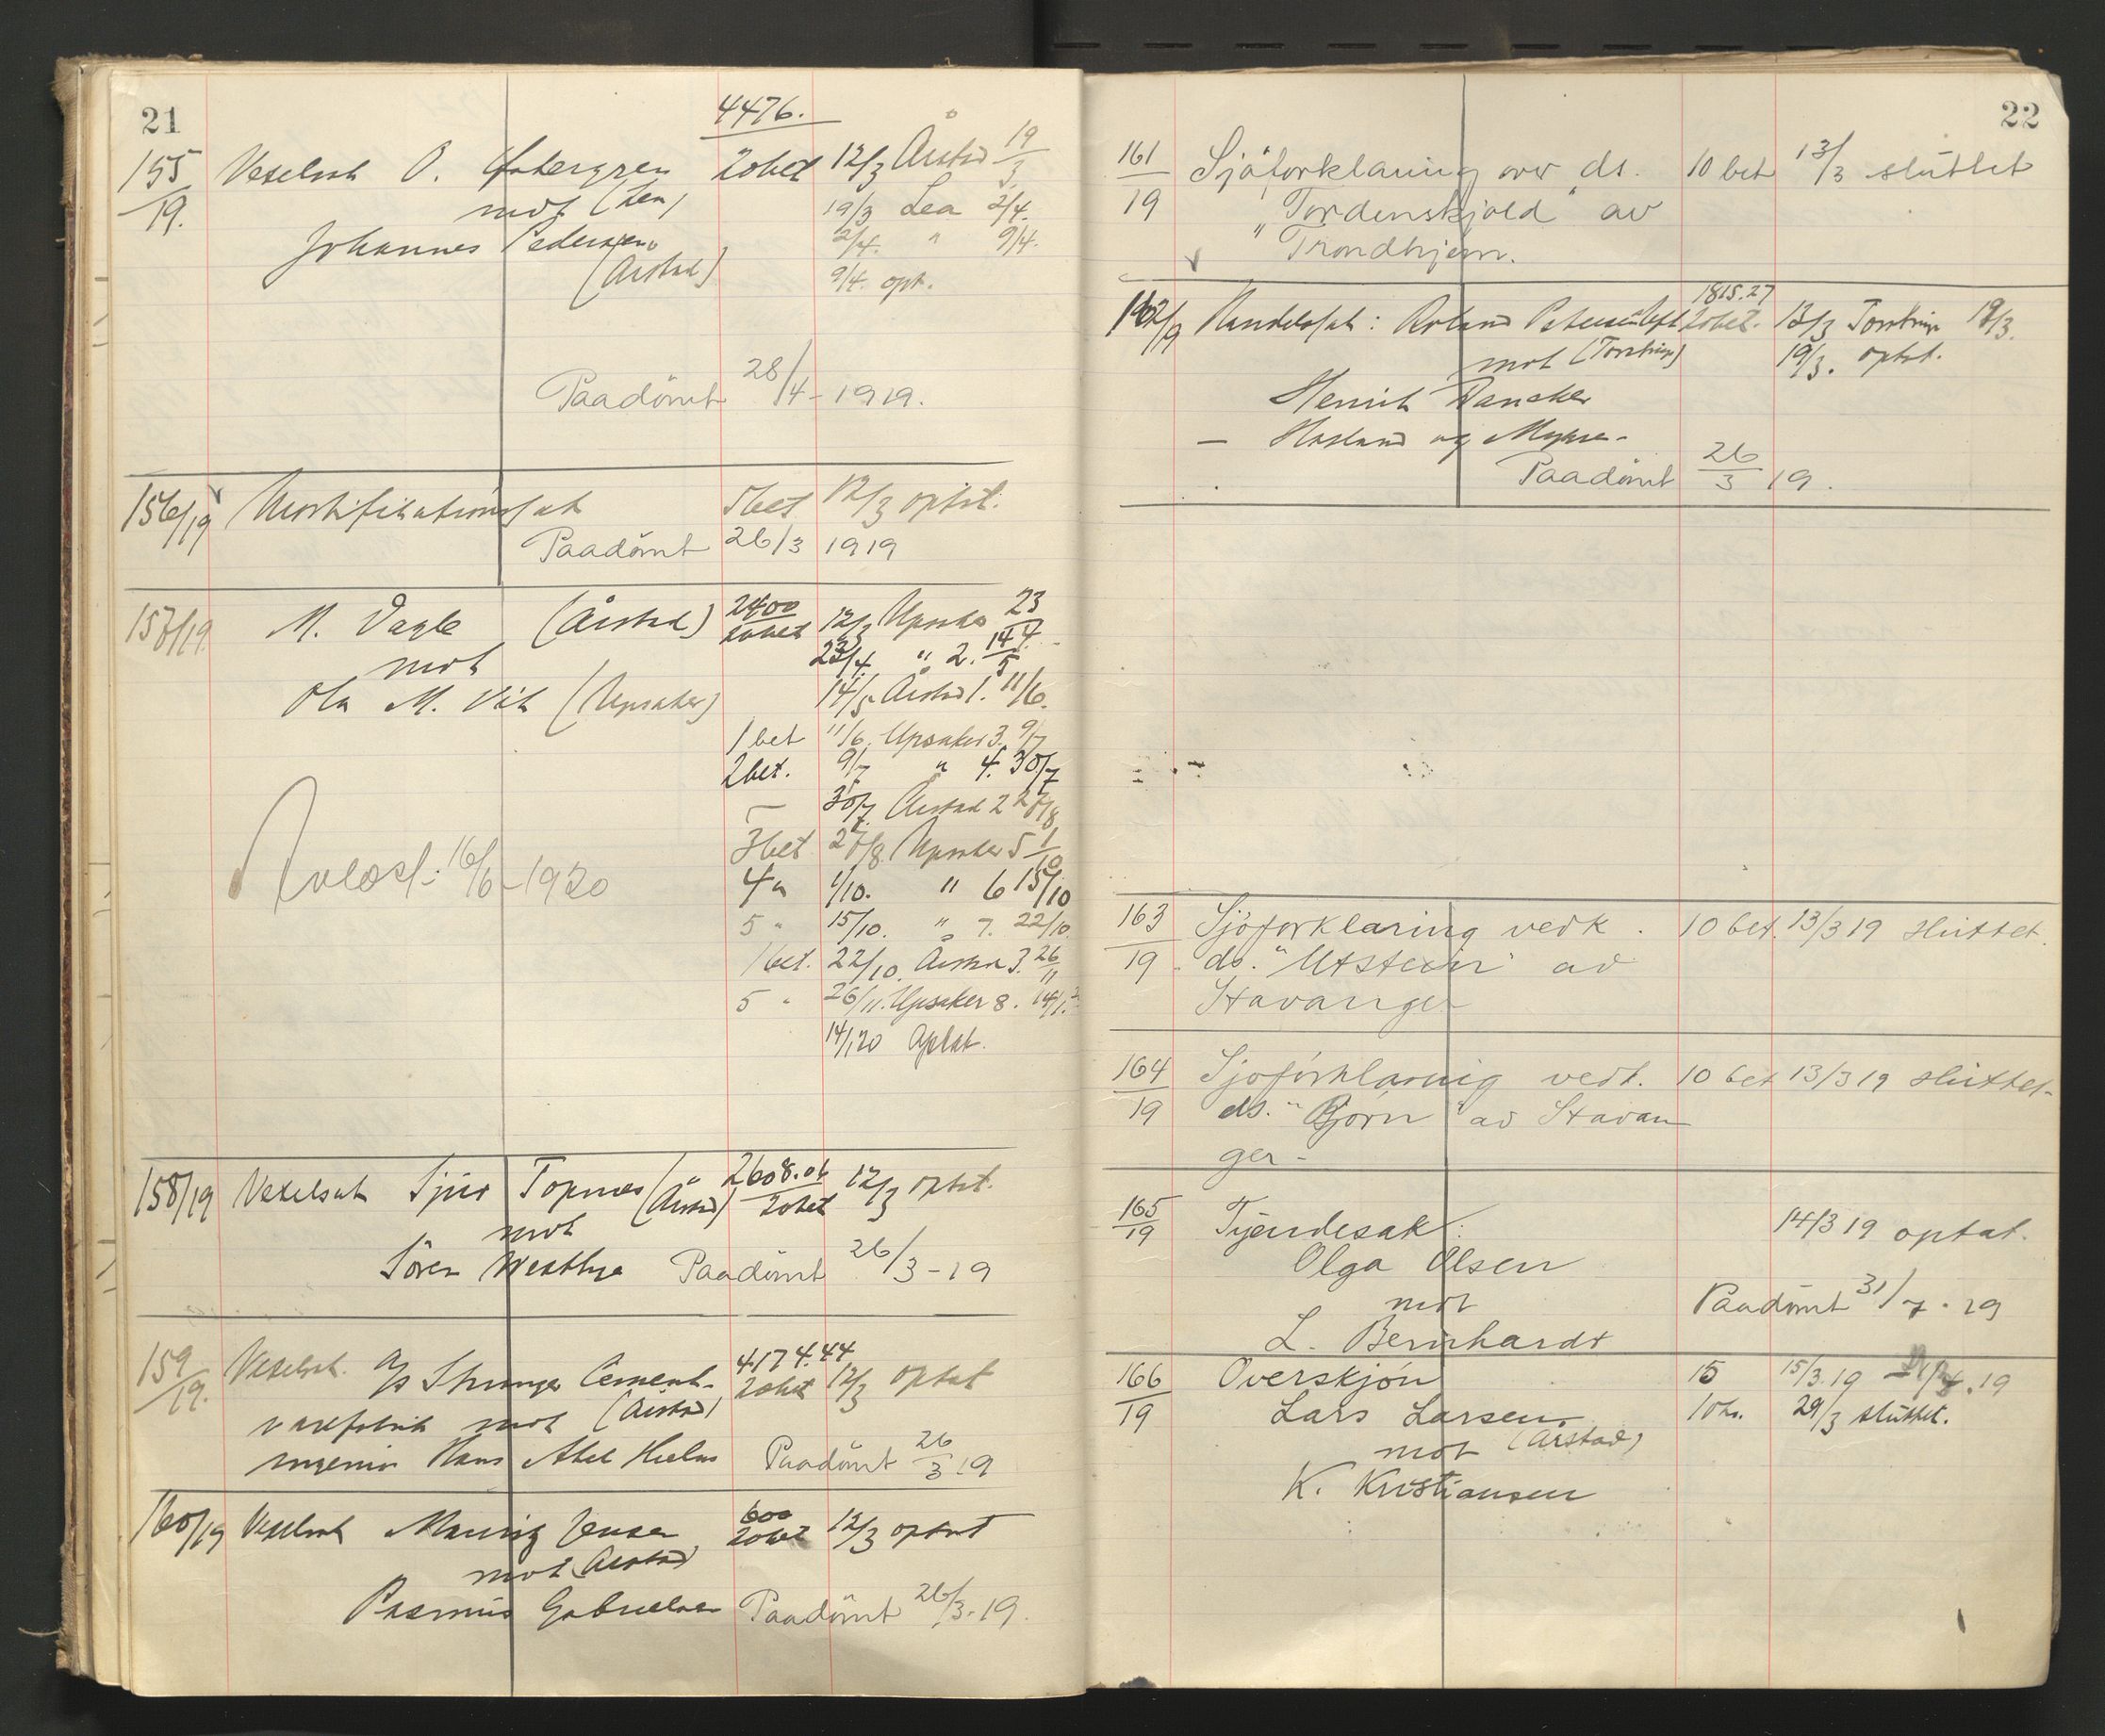 21
4476.
155/19. Vexelsak O. Østergren 20 bet 12/3 Årstad 19/3
mot (Lea) 19/3 Lea 2/4.
Johannes Pedersen 2/4. " 9/4.
(Årstad) 9/4. opt.
Paadömt 28/4-1919.
156/19 Mortifikationssak 5 bet 12/3 optat.
Paadömt 26/3 1919
157/19. M. Vagle (Årstad) 2400 20 bet 12/3 Upsaker 23/4
mot 23/4. " 2. 14/5
Ola M. (Upsaker) 14/5 Årstad 1. 11/6.
1 bet 11/6. Upsaker 3. 9/7
2 bet. 9/7 " 4. 30/7
— 30/7. Årstad 2 27/8
3 bet 27/8. Upsaker 5 1/10
4 " 1/10. " 6 15/10
16/6-1920
5 " 15/10. " 7. 22/10.
1 bet. 22/10. Årstad 3. 26/11
5 " 26/11. Upsaker 8. 14/1.
14/1 20 Optat.
158/19 Vexelsak Sjur Topnes (Årstad) 2608.06 20 bet 12/3 optat.
mot
Sören Westbye Paadömt 26/3-19
159/19. Vexelsak. A/s Stavanger Cement- 4174.44 20 bet 12/3 optat
varefabrik mot (Årstad)
ingeniør Hans Abel Hielm Paadömt 26/3 19
160/19 Vexelsak Mauritz Jensen 600 20 bet 12/3 optat
mot (Årstad)
Rasmus Gabrielsen Paadömt 26/3-19.
22
161/19 Sjöforklaring over ds. 10 bet 13/3 sluttet
"Tordenskjold" av
Trondhjem.
162/19 Handelssak: Roland Petersen 1815.27 20 bet. 12/3 Torstrup 19/3.
mot (Torstrup) 19/3. optat.
Henrik Dancker
— Hasland og
Paadömt 26/3 19.
163/19 Sjöforklaring vedk. 10 bet. 13/3 19 sluttet.
ds. "Utstein" av
Stavanger
164/19 Sjöforklaring vedk. 10 bet 13/3 19 sluttet-
ds. "Björn" av Stavan
ger-
165/19 Tjendesak: 14/3 19 optat.
Olga Olsen
mot Paadömt 31/7.19
L. Bernhardt
166/19 Overskjön 15 15/3.19
Lars Larsen 10 kr. 29/3 sluttet.
mot (Årstad)
K. Kristiansen